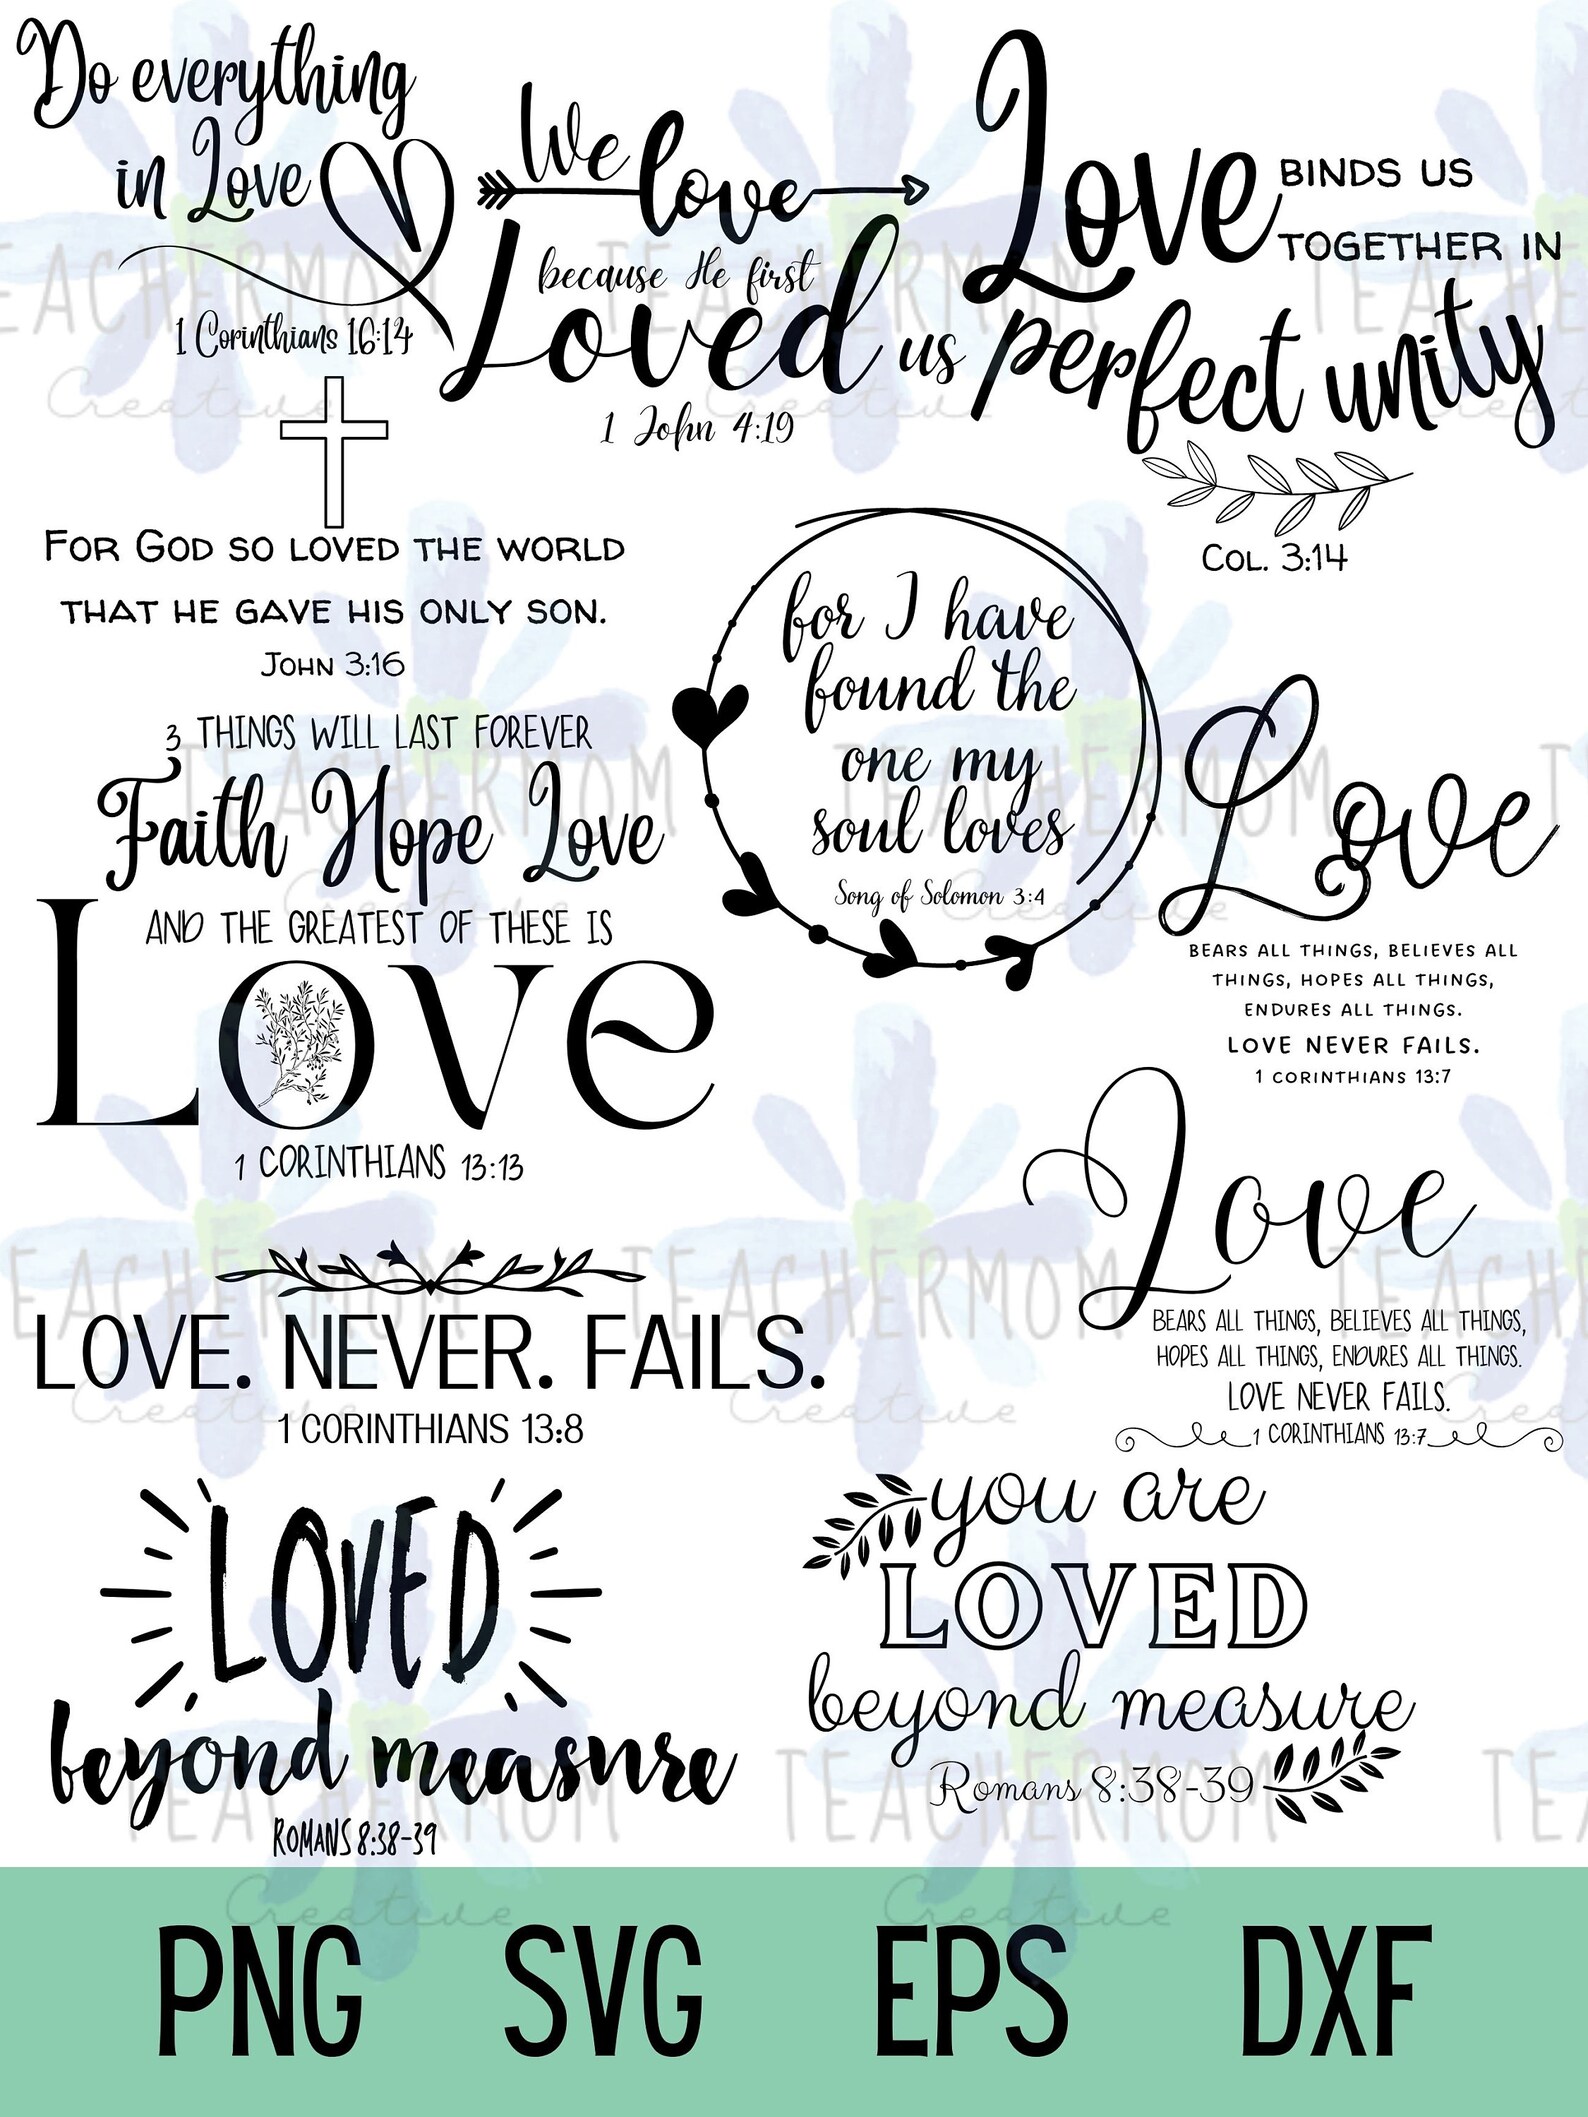 Do everything
in Love
1 Corinthians 16:14
We love
because He first
Loved us
1 John 4:19
Love BINDS US
TOGETHER IN
perfect unity
COL. 3:14
FOR GOD SO LOVED THE WORLD
THAT HE GAVE HIS ONLY SON.
JOHN 3:16
for I have
found the
one my
soul loves
Song of Solomon 3:4
3 THINGS WILL LAST FOREVER
Faith Hope Love
AND THE GREATEST OF THESE IS
Love
1 CORINTHIANS 13:13
Love
BEARS ALL THINGS, BELIEVES ALL
THINGS, HOPES ALL THINGS,
ENDURES ALL THINGS.
LOVE NEVER FAILS.
1 CORINTHIANS 13:7
Love
BEARS ALL THINGS, BELIEVES ALL THINGS,
HOPES ALL THINGS, ENDURES ALL THINGS.
LOVE NEVER FAILS.
1 CORINTHIANS 13:7
LOVE. NEVER. FAILS.
1 CORINTHIANS 13:8
LOVED
beyond measure
ROMANS 8:38-39
you are
LOVED
beyond measure
Romans 8:38-39
PNG SVG EPS DXF
TEACHERMOM
Creative